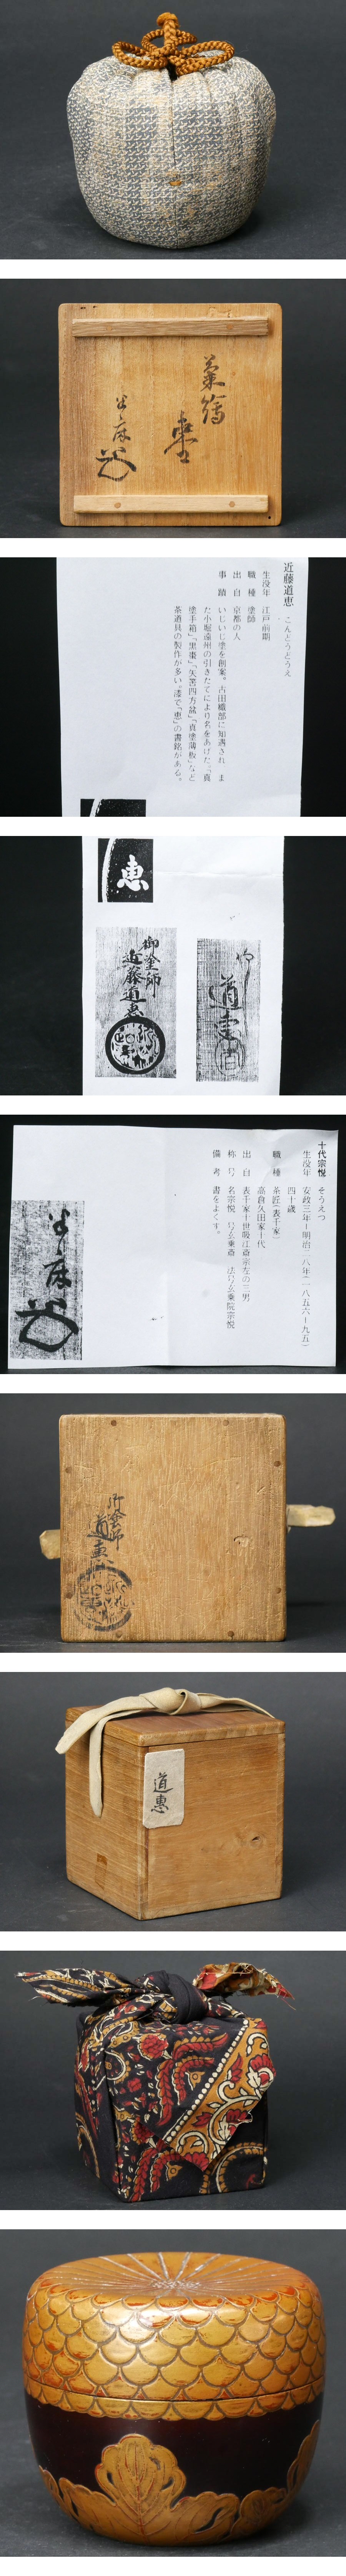 菊蒔
棗
半床
近藤道恵 こんどうどうえ
生没年 江戸前期
職種 塗師
出自 京都の人
事蹟 いじいじ塗を創案。古田織部に知遇され、ま
た小堀遠州の引きたてにより名をあげた。「真
塗手箱」「黒棗」「矢筈四方盆」「真塗薄板」など
茶道具の製作が多い。漆で「恵」の書銘がある。
恵
御塗師
近藤道恵
道恵
十代宗悦 そうえつ
生没年 安政三年ー明治二八年(一八五六ー九五)
四十歳
職種 茶匠(表千家)
高倉久田家十代
出自 表千家十世吸江斎宗左の三男
称号 名宗悦 号玄乗斎 法号玄乗院宗悦
備考 書をよくす。
半床
塗師
道恵
道恵